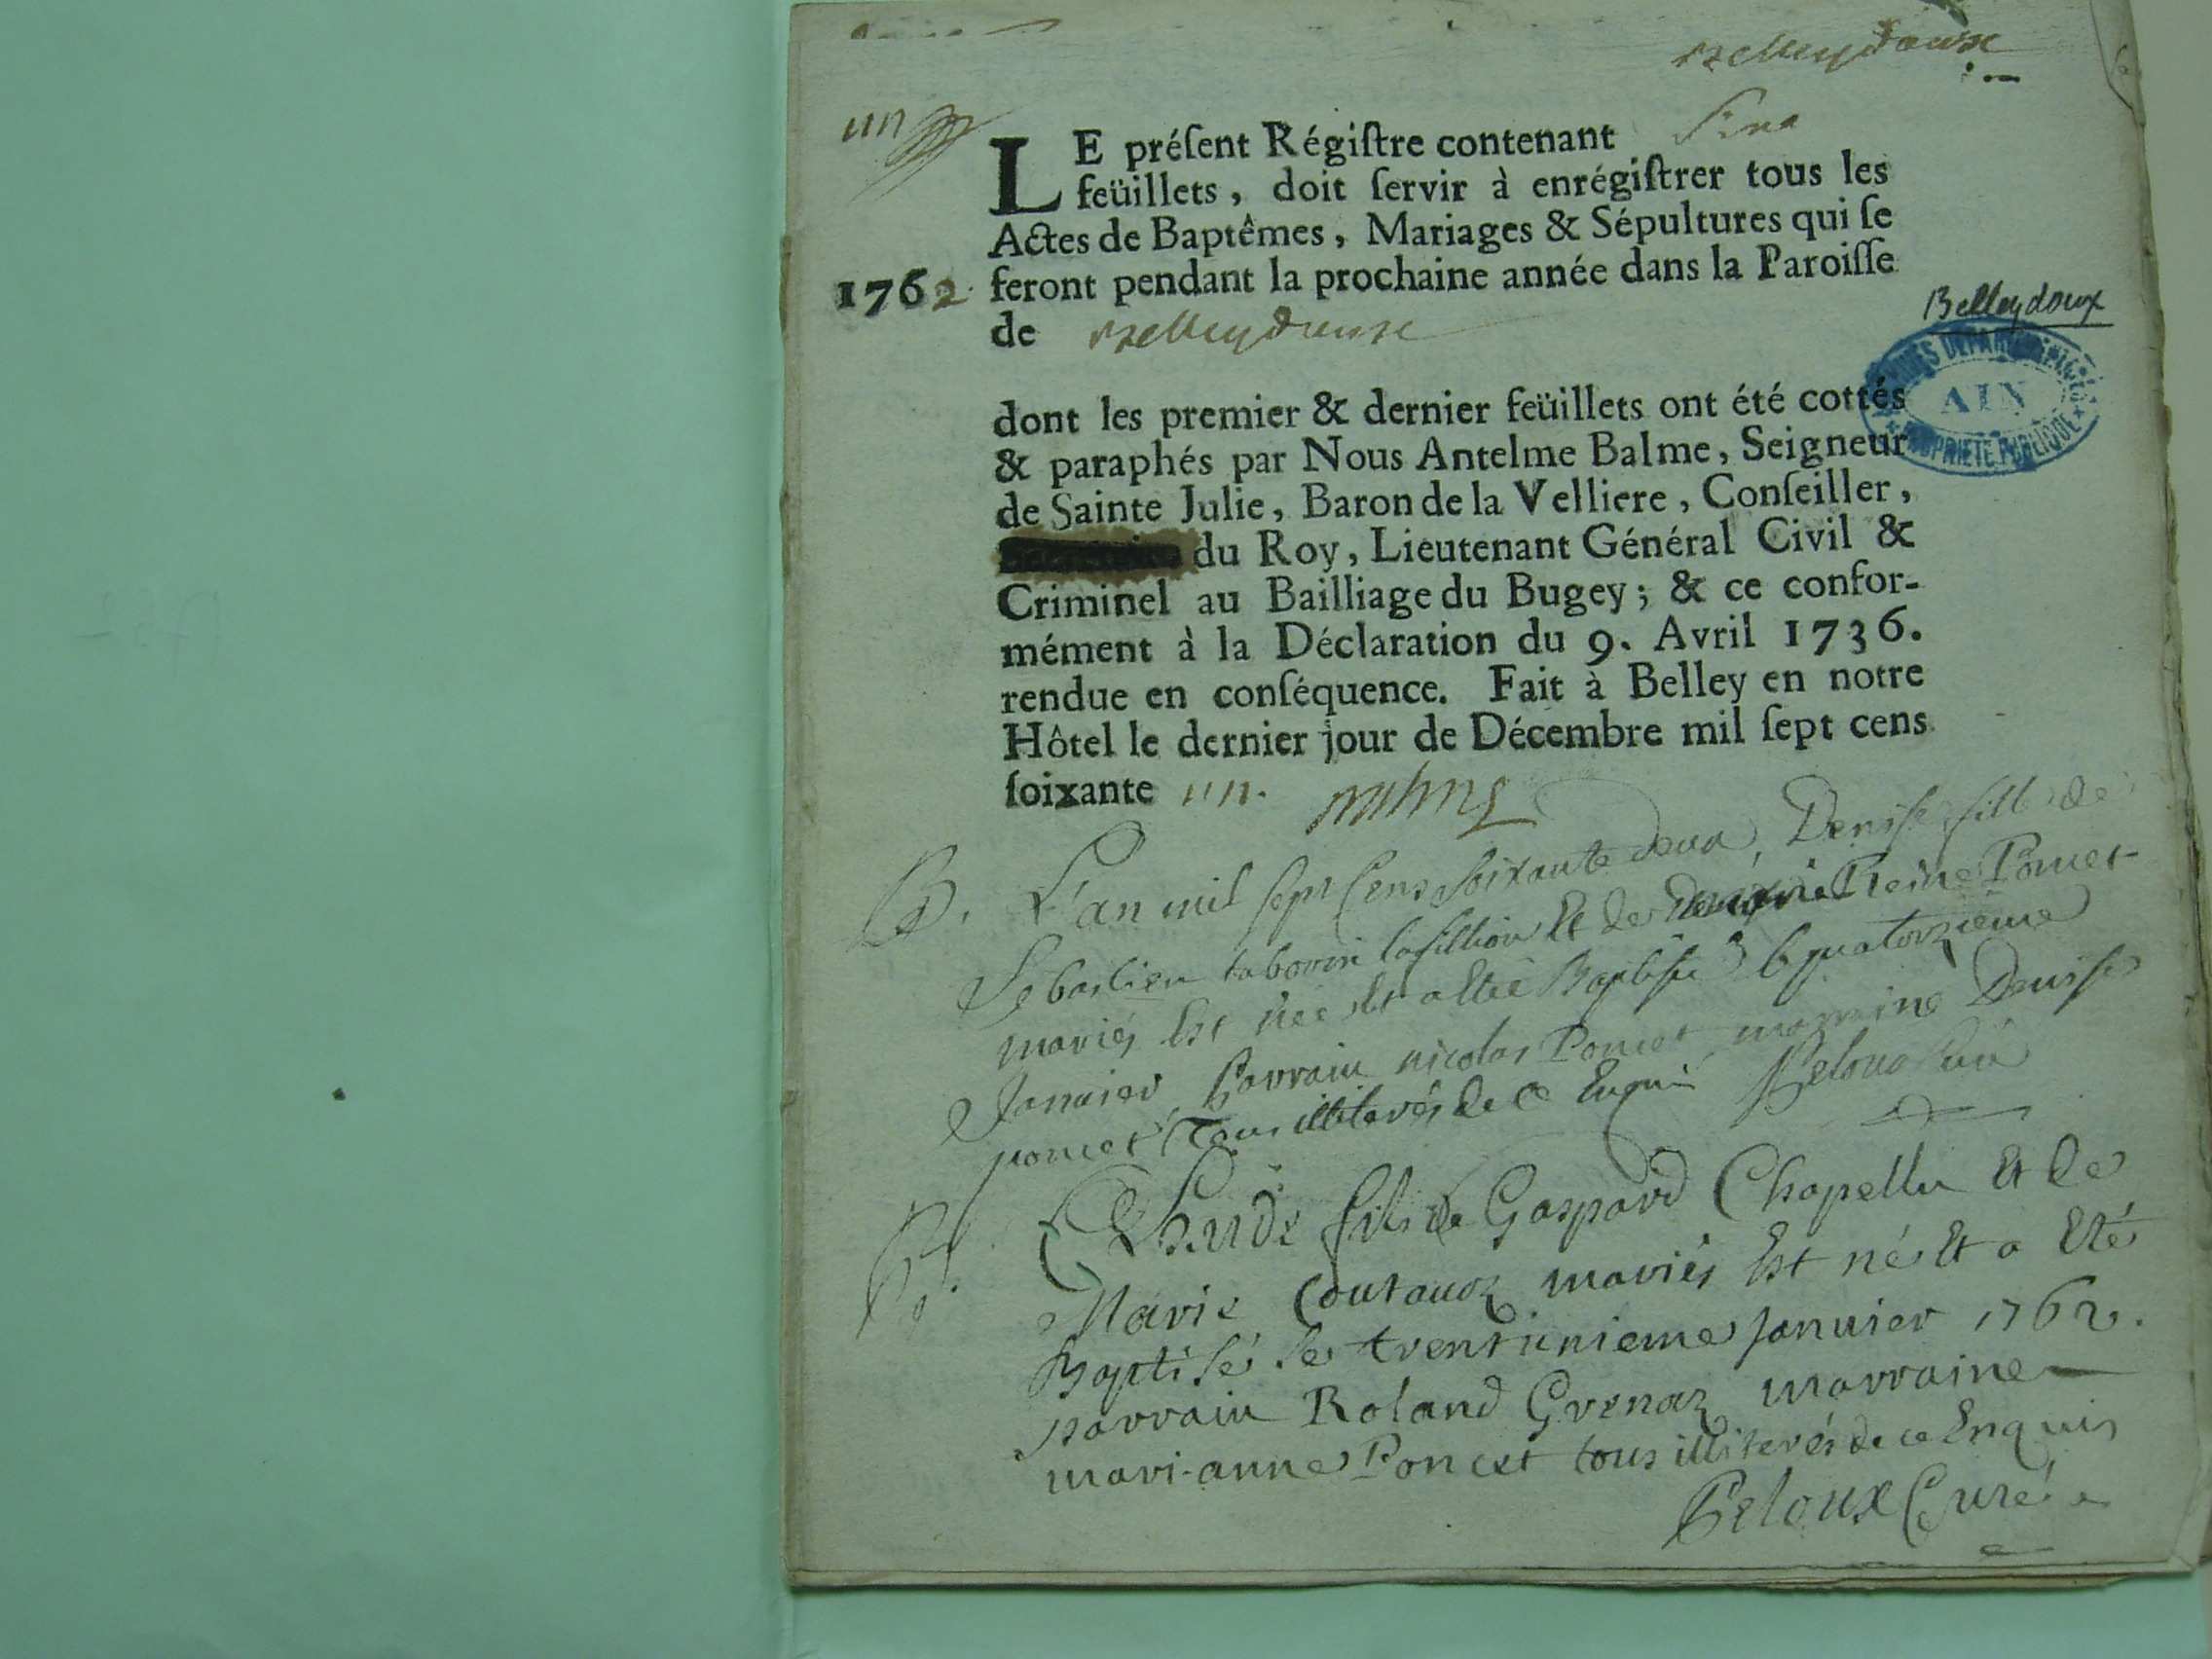 Belleydoux
un
LE préſent Régiſtre contenant six
feüillets, doit ſervir à enrégiſtrer tous les
Actes de Baptêmes, Mariages & Sépultures qui ſe
1762 feront pendant la prochaine année dans la Paroiſſe
de Belleydoux
Belleydoux
ARCHIVES DEPARTEMENTALES
AIN
PROPRIETE PUBLIQUE
dont les premier & dernier feüillets ont été cottés
& paraphés par Nous Antelme Balme, Seigneur
de Sainte Julie, Baron de la Velliere, Conſeiller,
du Roy, Lieutenant Général Civil &
Criminel au Bailliage du Bugey; & ce confor-
mément à la Déclaration du 9. Avril 1736.
rendue en conſéquence. Fait à Belley en notre
Hôtel le dernier jour de Décembre mil ſept cens
ſoixante un.
B. L'an mil sept Cens soixante deux, Denise fille de
Sebastien tabourin lafillion Et de Reine Poncet
mariés Est née Et a été Baptisée le quatorzieme
Janvier parrain nicolas Poncet marraine Denise
poncet Tous illiterés de ce Enquis Peloux Curé
B. Claude fils de Gaspard Chapellu Et de
Marie Coutauoz mariés Est né Et a Eté
Baptisé le trentunieme janvier 1762.
parrain Roland Grenaz marraine
mari-anne Poncet tous illiterés de ce Enquis
Peloux Curé